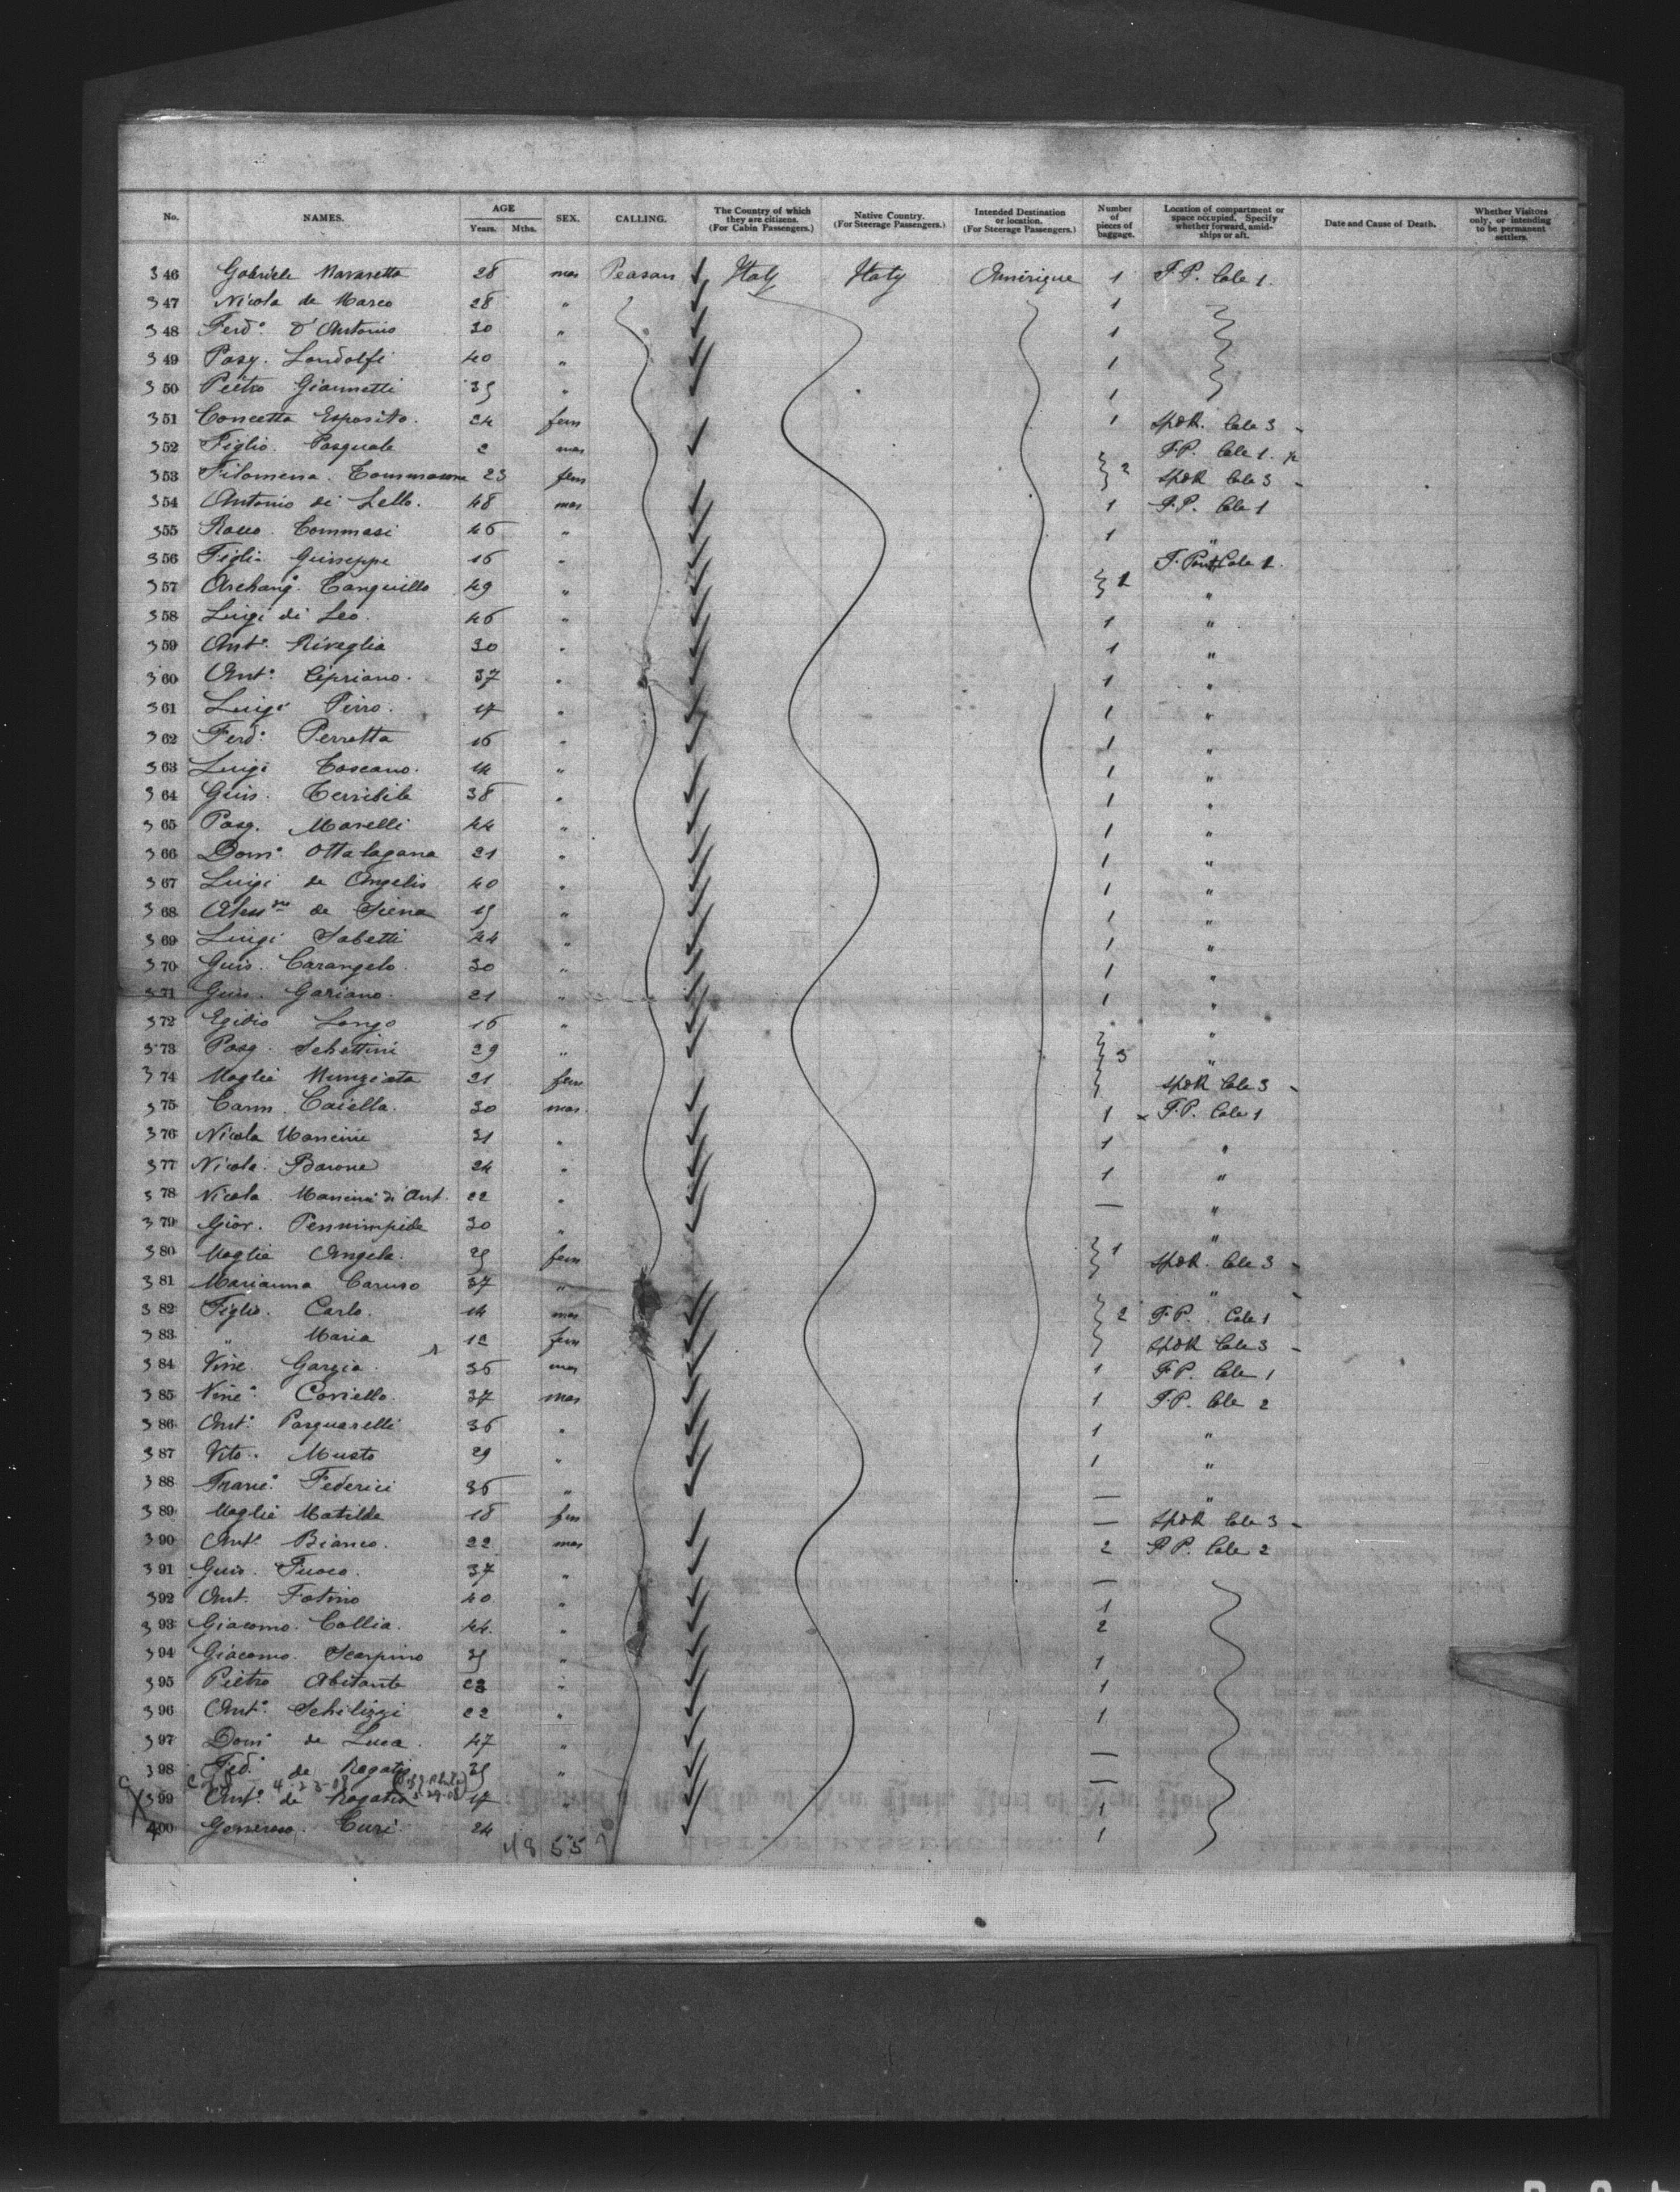 No. NAMES. AGE Years. Mths. SEX. CALLING. The Country of which they are citizens. (For Cabin Passengers.) Native Country. (For Steerage Passengers.) Intended Destination or location. (For Steerage Passengers.) Number of pieces of baggage. Location of compartment or space occupied. Specify whether forward, amidships or aft. Date and Cause of Death. Whether Visitors only, or intending to be permanent settlers.
346 Gabriele Navaretta 28 mas Peasan Italy Italy Amérique 1 F.P. Cale 1.
347 Nicola de Marco 28 " 1
348 Ferd.° D'Antonio 30 " 1
349 Pasq. Landolfi 40 " 1
350 Pietro Giannetti 35 " 1
351 Concetta Esposito. 24 fem 1 SpdR. Cale 3 -
352 Figlio. Pasquale 2 mas F.P. Cale 1.
353 Filomena. 23 fem 2 SpdR Cale 3 -
354 Antonio di Lello. 48 mas 1 F.P. Cale 1
355 Rocco. Tommasi 46 " 1 "
356 Figlio Guiseppe 16 " F. Pont Cale 1.
357 Archang.° Tanquillo 49 " "
358 Luigi di Leo. 46 " 1 "
359 Ant.° Riveglia 30 " 1 "
360 Ant.° Cipriano. 37 " 1 "
361 Luigi Pirro. 17 " 1 "
362 Ferd.° Perretta 16 " 1 "
363 Luigi Toscano. 14 " 1 "
364 Guis. Terribile 38 " 1 "
365 Pasq. Morelli 44 " 1 "
366 Dom.° Ottalagana 21 " 1 "
367 Luigi de Angelis 40 " 1 "
368 de Siena 19 " 1 "
369 Luigi Sabetti 44 " 1 "
370 Guis. Carangelo. 30 " 1 "
371 Guis. Gariano. 21 " 1 "
372 Egidio Longo 16 " "
373 Pasq. Schettini 29 " 3 "
374 Moglie Nunziata 21 fem SpdR Cale 3 -
375 Carm. Caiella. 30 mas. 1 F.P. Cale 1
376 Nicola Mancini 31 " 1 "
377 Nicola. Barone 24 " 1 "
378 Nicola. Mancini di Ant. 22 " — "
379 Giov. Pennimpide 30 " "
380 Moglie Angela. 25 fem 1 SpdR. Cale 3 -
381 Marianna Caruso 37 " " -
382 Figlio. Carlo. 14 mas 2 F.P. Cale 1
383 " Maria 12 fem SpdR Cale 3 -
384 Vinc. Gargia. 36 mas 1 F.P. Cale 1
385 Vinc.° Coviello. 37 mas 1 F.P. Cale 2
386 Ant.° Pasquarelli 36 " 1 "
387 Vito. Musto 29 " 1 "
388 Franc.° Federici 36 " — "
389 Moglie Matilde 18 fem — SpdR Cale 3 -
390 Ant.° Bianco. 22 mas 2 F.P. Cale 2
391 Guis. Fuoco. 37 " —
392 Ant. Fotino 40 " 1
393 Giacomo. Collia. 44. " 2
394 Giacomo. Scarpino 35 " 1
395 Pietro Abitante 23 " 1
396 Ant.° Schilizzi 22 " 1
397 Dom.° de Luca. 47 " —
398 Fed.° de Rogatis 35 " —
4-23-08
399 Ant.° de Rogatis 17 " 1
400 Generoso. Turi. 24 1